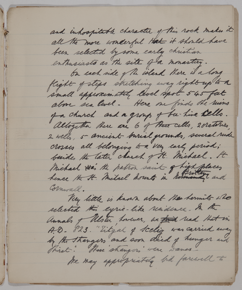 and inhospitable character of this rock makes it
all the more wonderful that it should have
been selected by some early christian
enthusiasts as the site of a monastery.
On each side of the island there is a long
flight of steps stretching way right up to a
small approximately level spot 540 feet
above sea level. Here one finds the ruins
of a church and a group of bee hive cells.
Altogether there are 6 of these cells, 2 oratories
2 cells, ancient burial grounds, several rude
crosses all belonging to a very early period;
beside the later church of St Michael. St
Michael was the patron saint of high places,
hence the St Michael's mounts in Brittany and
Cornwall.
Very little is known about the hermits who
selected this eyrie-like residence. In the
annals of Ulster however, we read that in
A.D. 823. "Etgal of Scelig was carried away
by the strangers and soon died of hunger and
thirst". These strangers were Danes.
We may appropriately bid farewell to